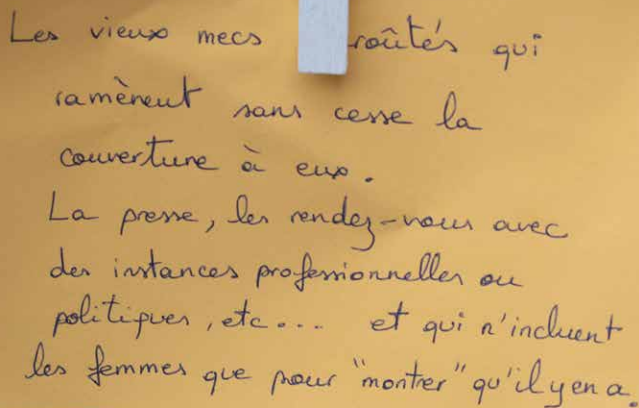 Les vieux mecs roûtés qui
ramènent sans cesse la
couverture à eux.
La presse, les rendez-vous avec
des instances professionnelles ou
politiques, etc... et qui n'incluent
les femmes que pour "montrer" qu'il y en a.